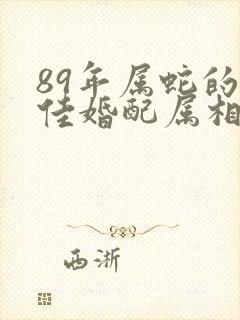 89年属蛇的
佳婚配属相
西淅